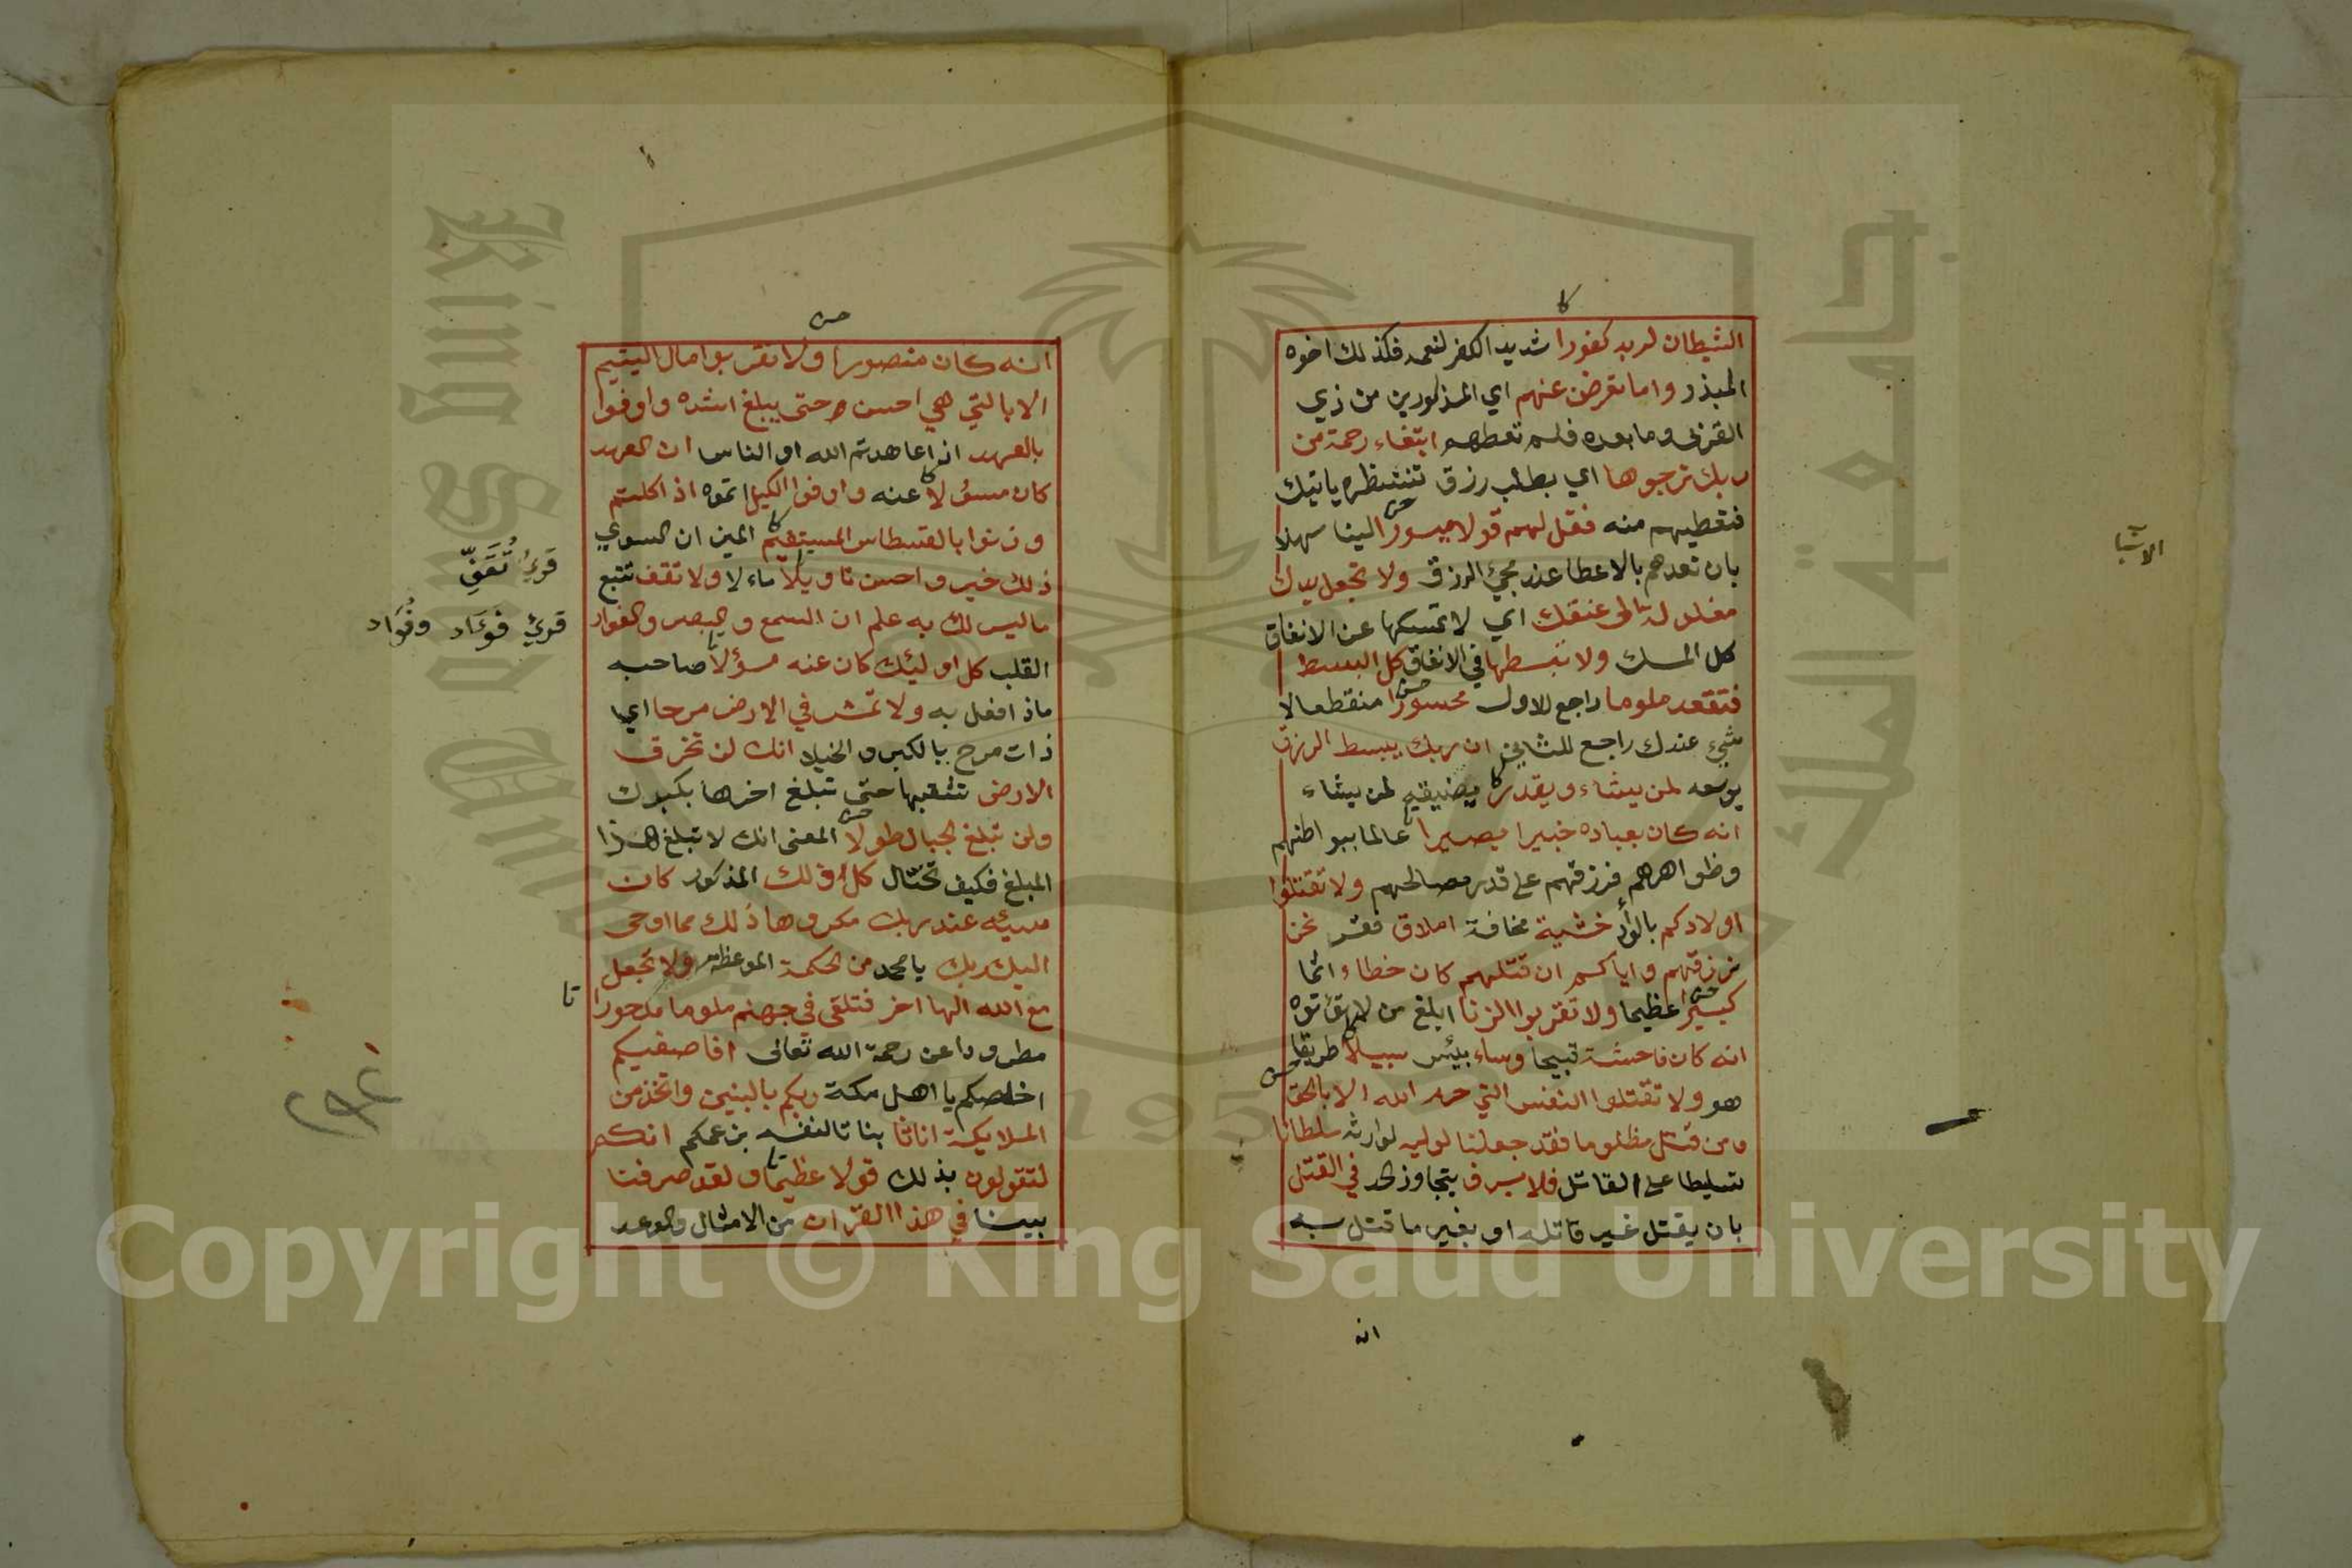 الشيطان لربه كفورا شديد الكفر لنعمه فكذلك اخوه
المبذر واما تعرضن عنهم اي المذكورين من ذي
القربى وما بعده فلم تعطهم ابتغاء رحمة من
ربك ترجوها اي بطلب رزق تنتظره ياتيك
فتعطيهم منه فقل لهم قولا ميسورا لينا سهلا
بان تعدهم بالاعطا عند مجئ الرزق ولا تجعل يدك
مغلولة الى عنقك اي لا تمسكها عن الانفاق
كل المسك ولا تبسطها في الانفاق كل البسط
فتقعد ملوما راجع للاول محسورا منقطعا لا
شيء عندك راجع للثاني ان ربك يبسط الرزق
يوسعه لمن يشاء ويقدر يضيقه لمن يشاء
انه كان بعباده خبيرا بصيرا عالما ببواطنهم
وظواهرهم فرزقهم على قدر مصالحهم ولا تقتلوا
اولادكم بالوأد خشية مخافة املاق فقر نحن
نرزقهم واياكم ان قتلهم كان خطاء اثما
كبيرا عظيما ولا تقربوا الزنا ابلغ من لا تأتوه
انه كان فاحشة قبيحا وساء بئس سبيلا طريقا
هو ولا تقتلوا النفس التي حرم الله الا بالحق
ومن قتل مظلوما فقد جعلنا لوليه لوارثه سلطانا
تسليطا على القاتل فلا يسرف يتجاوز الحد في القتل
بان يقتل غير قاتله او بغير ما قتل به
انه
انه كان منصورا ولا تقربوا مال اليتيم
الا بالتي هي احسن حتى يبلغ اشده واوفوا
بالعهد اذا عاهدتم الله او الناس ان العهد
كان مسؤلا عنه واوفوا الكيل اتموه اذا كلتم
وزنوا بالقسطاس المستقيم الميزان السوي
ذلك خير واحسن تاويلا ماءلا ولا تقف تتبع
ما ليس لك به علم ان السمع والبصر والفواد
القلب كل اوليئك كان عنه مسؤلا صاحبه
ماذا فعل به ولا تمش في الارض مرحا اي
ذات مرح بالكبر والخيلا انك لن تخرق
الارض تثقبها حتى تبلغ اخرها بكبرك
ولن تبلغ الجبال طولا المعنى انك لا تبلغ هذا
المبلغ فكيف تختال كل ذلك المذكور كان
سيئه عند ربك مكروها ذلك مما اوحى
اليك ربك يا محمد من الحكمة الموعظة ولا تجعل
مع الله الها اخر فتلقى في جهنم ملوما مدحورا
مطرودا عن رحمة الله تعالى افاصفيكم
اخلصكم يا اهل مكة ربكم بالبنين واتخذ من
الملايكة اناثا بناتا لنفسه بزعمكم انكم
لتقولون بذلك قولا عظيما ولقد صرفنا
بينا في هذا القران من الامثال والوعد
قرئ تُقَفِّ
قرئ فَوَءاد وفُوَاد
Copyright © King Saud University
King Saud
جامعة الملك
195